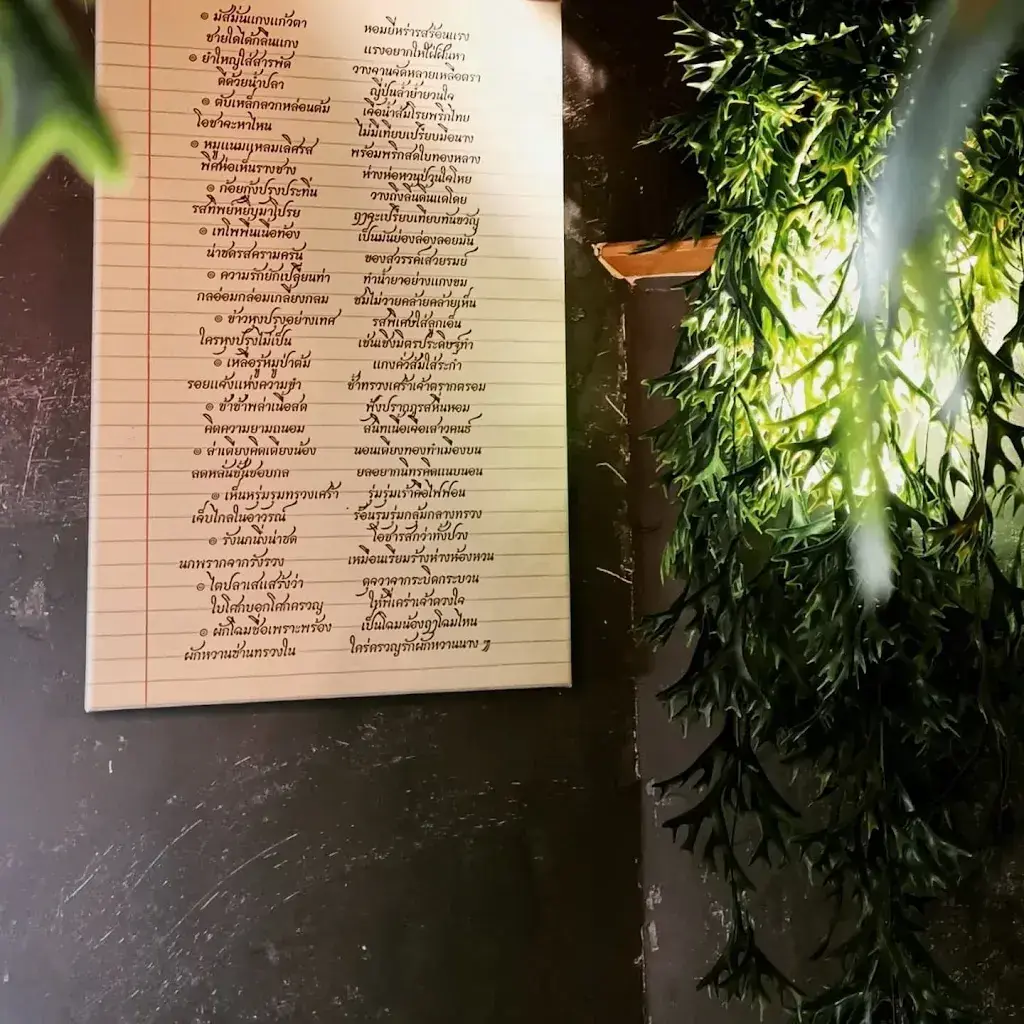 ๏ มัสมั่นแกงแก้วตา หอมยี่หร่ารสร้อนแรง
ชายใดได้กลืนแกง แรงอยากให้ใฝ่ฝันหา
๏ ยำใหญ่ใส่สารพัด วางจานจัดหลายเหลือตรา
ดีด้วยน้ำปลา ญี่ปุ่นล้ำย้ำยวนใจ
๏ ตับเหล็กลวกหล่อนต้ม เจือน้ำส้มโรยพริกไทย
โอชาจะหาไหน ไม่มีเทียบเปรียบมือนาง
๏ หมูแนมแหลมเลิศรส พร้อมพริกสดใบทองหลาง
พิศห่อเห็นรางชาง ห่างห่อหวนป่วนใจโหย
๏ ก้อยกุ้งปรุงประทิ่น วางถึงลิ้นดิ้นแดโดย
รสทิพย์หยิบมาโปรย ฤๅจะเปรียบเทียบทันขวัญ
๏ เทโพพื้นเนื้อท้อง เป็นมันย่องล่องลอยมัน
น่าซดรสครามครัน ของสวรรค์เสวยรมย์
๏ ความรักยักเปลี่ยนท่า ทำน้ำยาอย่างแกงขม
กลอ่อมกล่อมเกลี้ยงกลม ชมไม่วายคล้ายคล้ายเห็น
๏ ข้าวหุงปรุงอย่างเทศ รสพิเศษใส่ลูกเอ็น
ใครหุงปรุงไม่เป็น เช่นเชิงมิตรประดิษฐ์ทำ
๏ เหลือรู้หมูป่าต้ม แกงคั่วส้มใส่ระกำ
รอยแจ้งแห่งความขำ ช้ำทรวงเศร้าเจ้าตรากตรอม
๏ ช้าช้าพล่าเนื้อสด ฟุ้งปรากฏรสหื่นหอม
คิดความยามถนอม สนิทเนื้อเจือเสาวคนธ์
๏ ล่าเตียงคิดเตียงน้อง นอนเตียงทองทำเมืองบน
ลดหลั่นชั้นชอบกล ยลอยากนิทรคิดแนบนอน
๏ เห็นหรุ่มรุมทรวงเศร้า รุ่มรุ่มเร้าคือไฟฟอน
เจ็บไกลในอาวรณ์ ร้อนรุมรุ่มกลุ้มกลางทรวง
๏ รังนกนึ่งน่าซด โอชารสกว่าทั้งปวง
นกพรากจากรังรวง เหมือนเรียมร้างห่างห้องหวน
๏ ไตปลาเสแสร้งว่า ดุจวาจากระบิดกระบวน
ใบโศกบอกโศกครวญ ให้พี่เคร่าเจ้าดวงใจ
๏ ผักโฉมชื่อเพราะพร้อง เป็นโฉมน้องฤๅโฉมไหน
ผักหวานซ่านทรวงใน ใคร่ครวญรักผักหวานนาง ๚